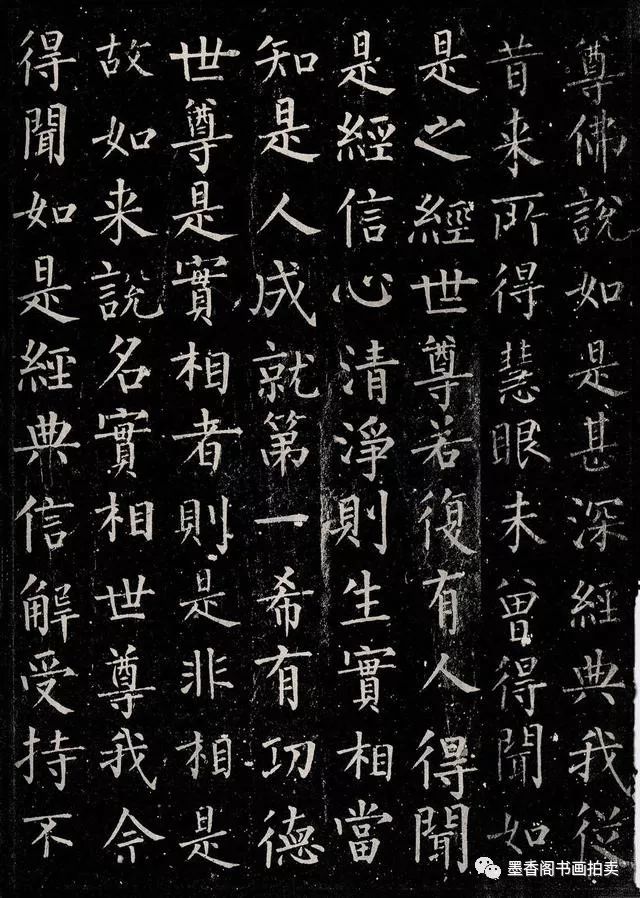 尊佛說如是甚深經典我從
昔来所得慧眼未曾得聞如
是之經世尊若復有人得聞
是經信心清淨則生實相當
知是人成就第一希有功德
世尊是實相者則是非相是
故如来說名實相世尊我今
得聞如是經典信解受持不
墨香阁书画拍卖